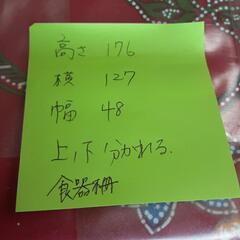 高さ 176
横 127
幅 48
上、下分かれる.
食器棚